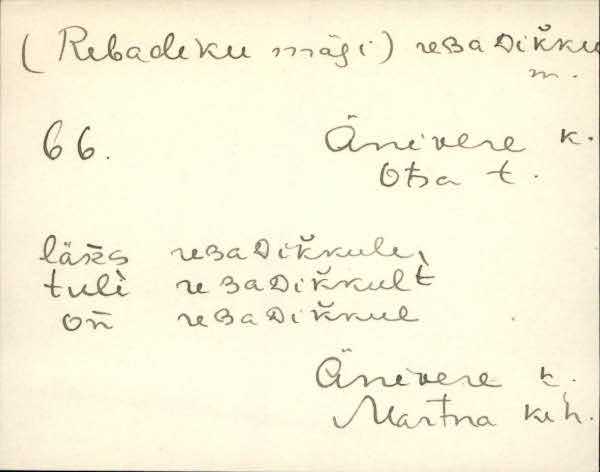 (Rebadeku mägi) reʙaᴅik̆ku
m.
66. Änivere k.
Otsa t.
läks reʙaᴅik̆kule,
tuli reʙaᴅik̆kult
on reʙaᴅik̆kul
Änivere k.
Martna kih.